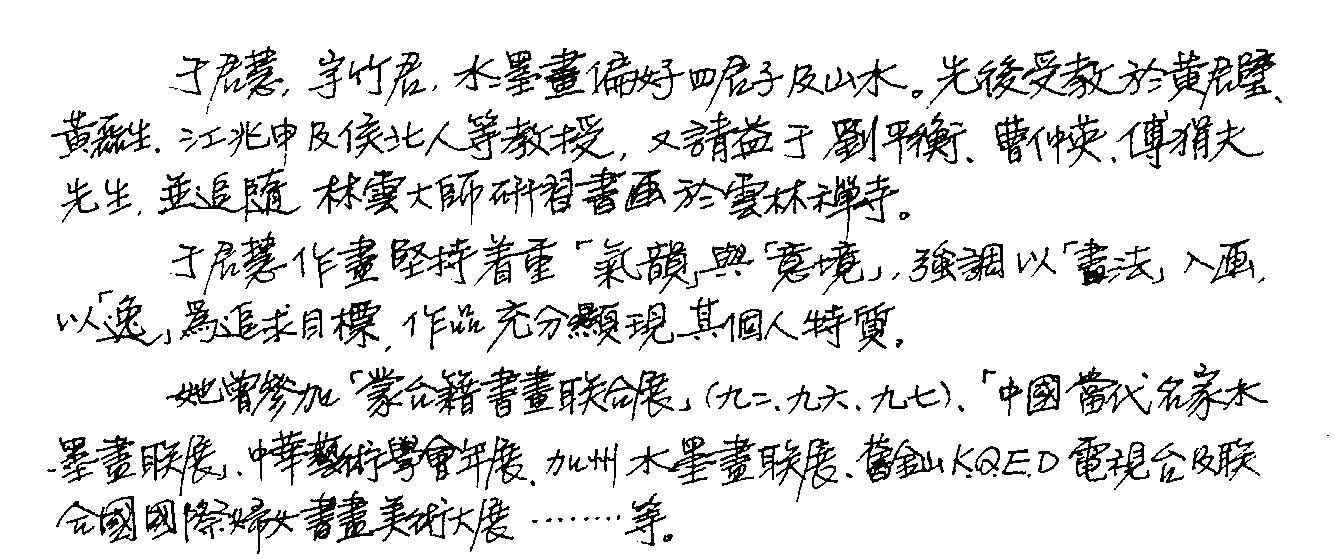 于君慧，字竹君，水墨畫偏好四君子及山水。先後受教於黃君璧、
黃磊生、江兆申及侯北人等教授，又請益于劉平衡、曹仲英、傅狷夫
先生，並追隨 林雲大師研習書画於雲林禪寺。
于君慧作畫堅持着重「氣韻」與「意境」，強調以「書法」入画，
以「逸」為追求目標，作品充分顯現其個人特質。
她曾參加「蒙台籍書畫联合展」（九二、九六、九七）、「中國當代名家水
墨畫联展」、中華藝術學會年展、加州水墨畫联展、舊金山K.Q.E.D電視台及联
合國國際婦女書畫美術大展………等。